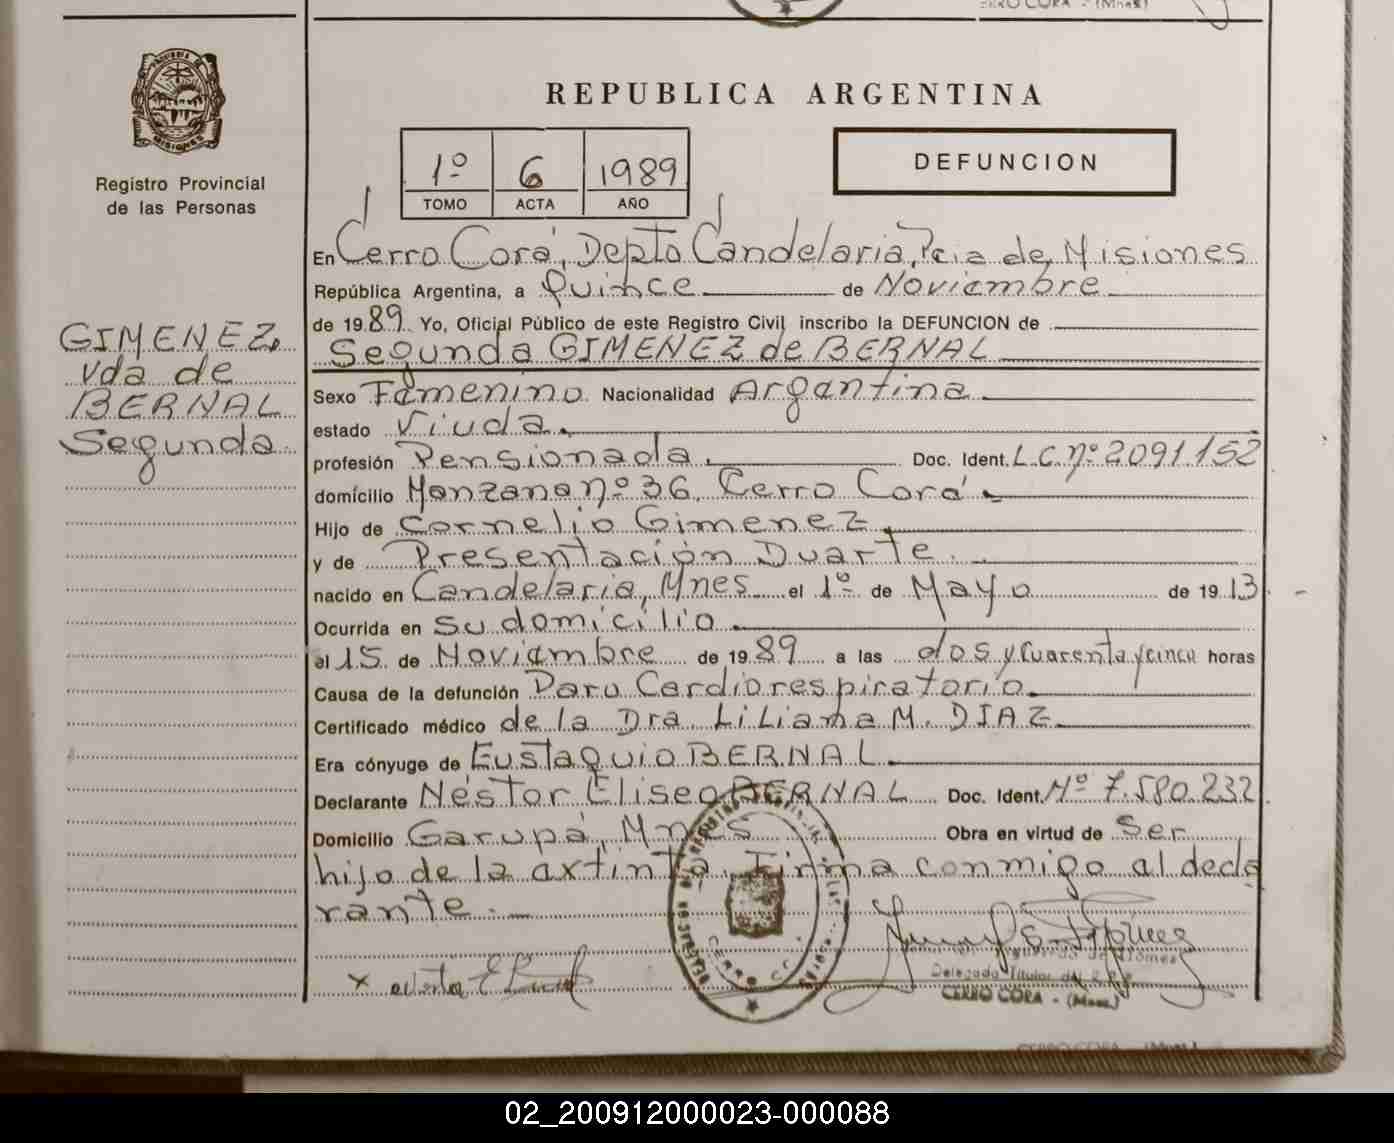 CERRO CORA - (Mnes)
MISIONES
Registro Provincial
de las Personas
GIMENEZ
vda de
BERNAL
Segunda
REPUBLICA ARGENTINA
DEFUNCION
1º 6 1989
TOMO ACTA AÑO
En Cerro Corá, Depto Candelaria, Pcia de Misiones
República Argentina, a Quince de Noviembre
de 1989 Yo, Oficial Público de este Registro Civil inscribo la DEFUNCION de
Segunda GIMENEZ de BERNAL
Sexo Femenino Nacionalidad Argentina
estado Viuda.
profesión Pensionada. Doc. Ident. L.C. nº 2091.152
domicilio Manzana nº 36, Cerro Corá.
Hijo de Cornelio Gimenez
y de Presentación Duarte.
nacido en Candelaria, Mnes el 1º de Mayo de 1913
Ocurrida en su domicilio
el 15 de Noviembre de 1989 a las dos y cuarenta y cinco horas
Causa de la defunción Paro Cardiorespiratorio.
Certificado médico de la Dra. Liliana M. DIAZ
Era cónyuge de Eustaquio BERNAL
Declarante Néstor Eliseo BERNAL Doc. Ident. Nº 7.580.232
Domicilio Garupá, Mnes Obra en virtud de Ser
hijo de la extinta. Firma conmigo el decla
rante.
x
CERRO CO
Delegada Titular del R.P.P.
CERRO CORA - (Mnes)
CERRO CORA - (Mnes)
02_200912000023-000088